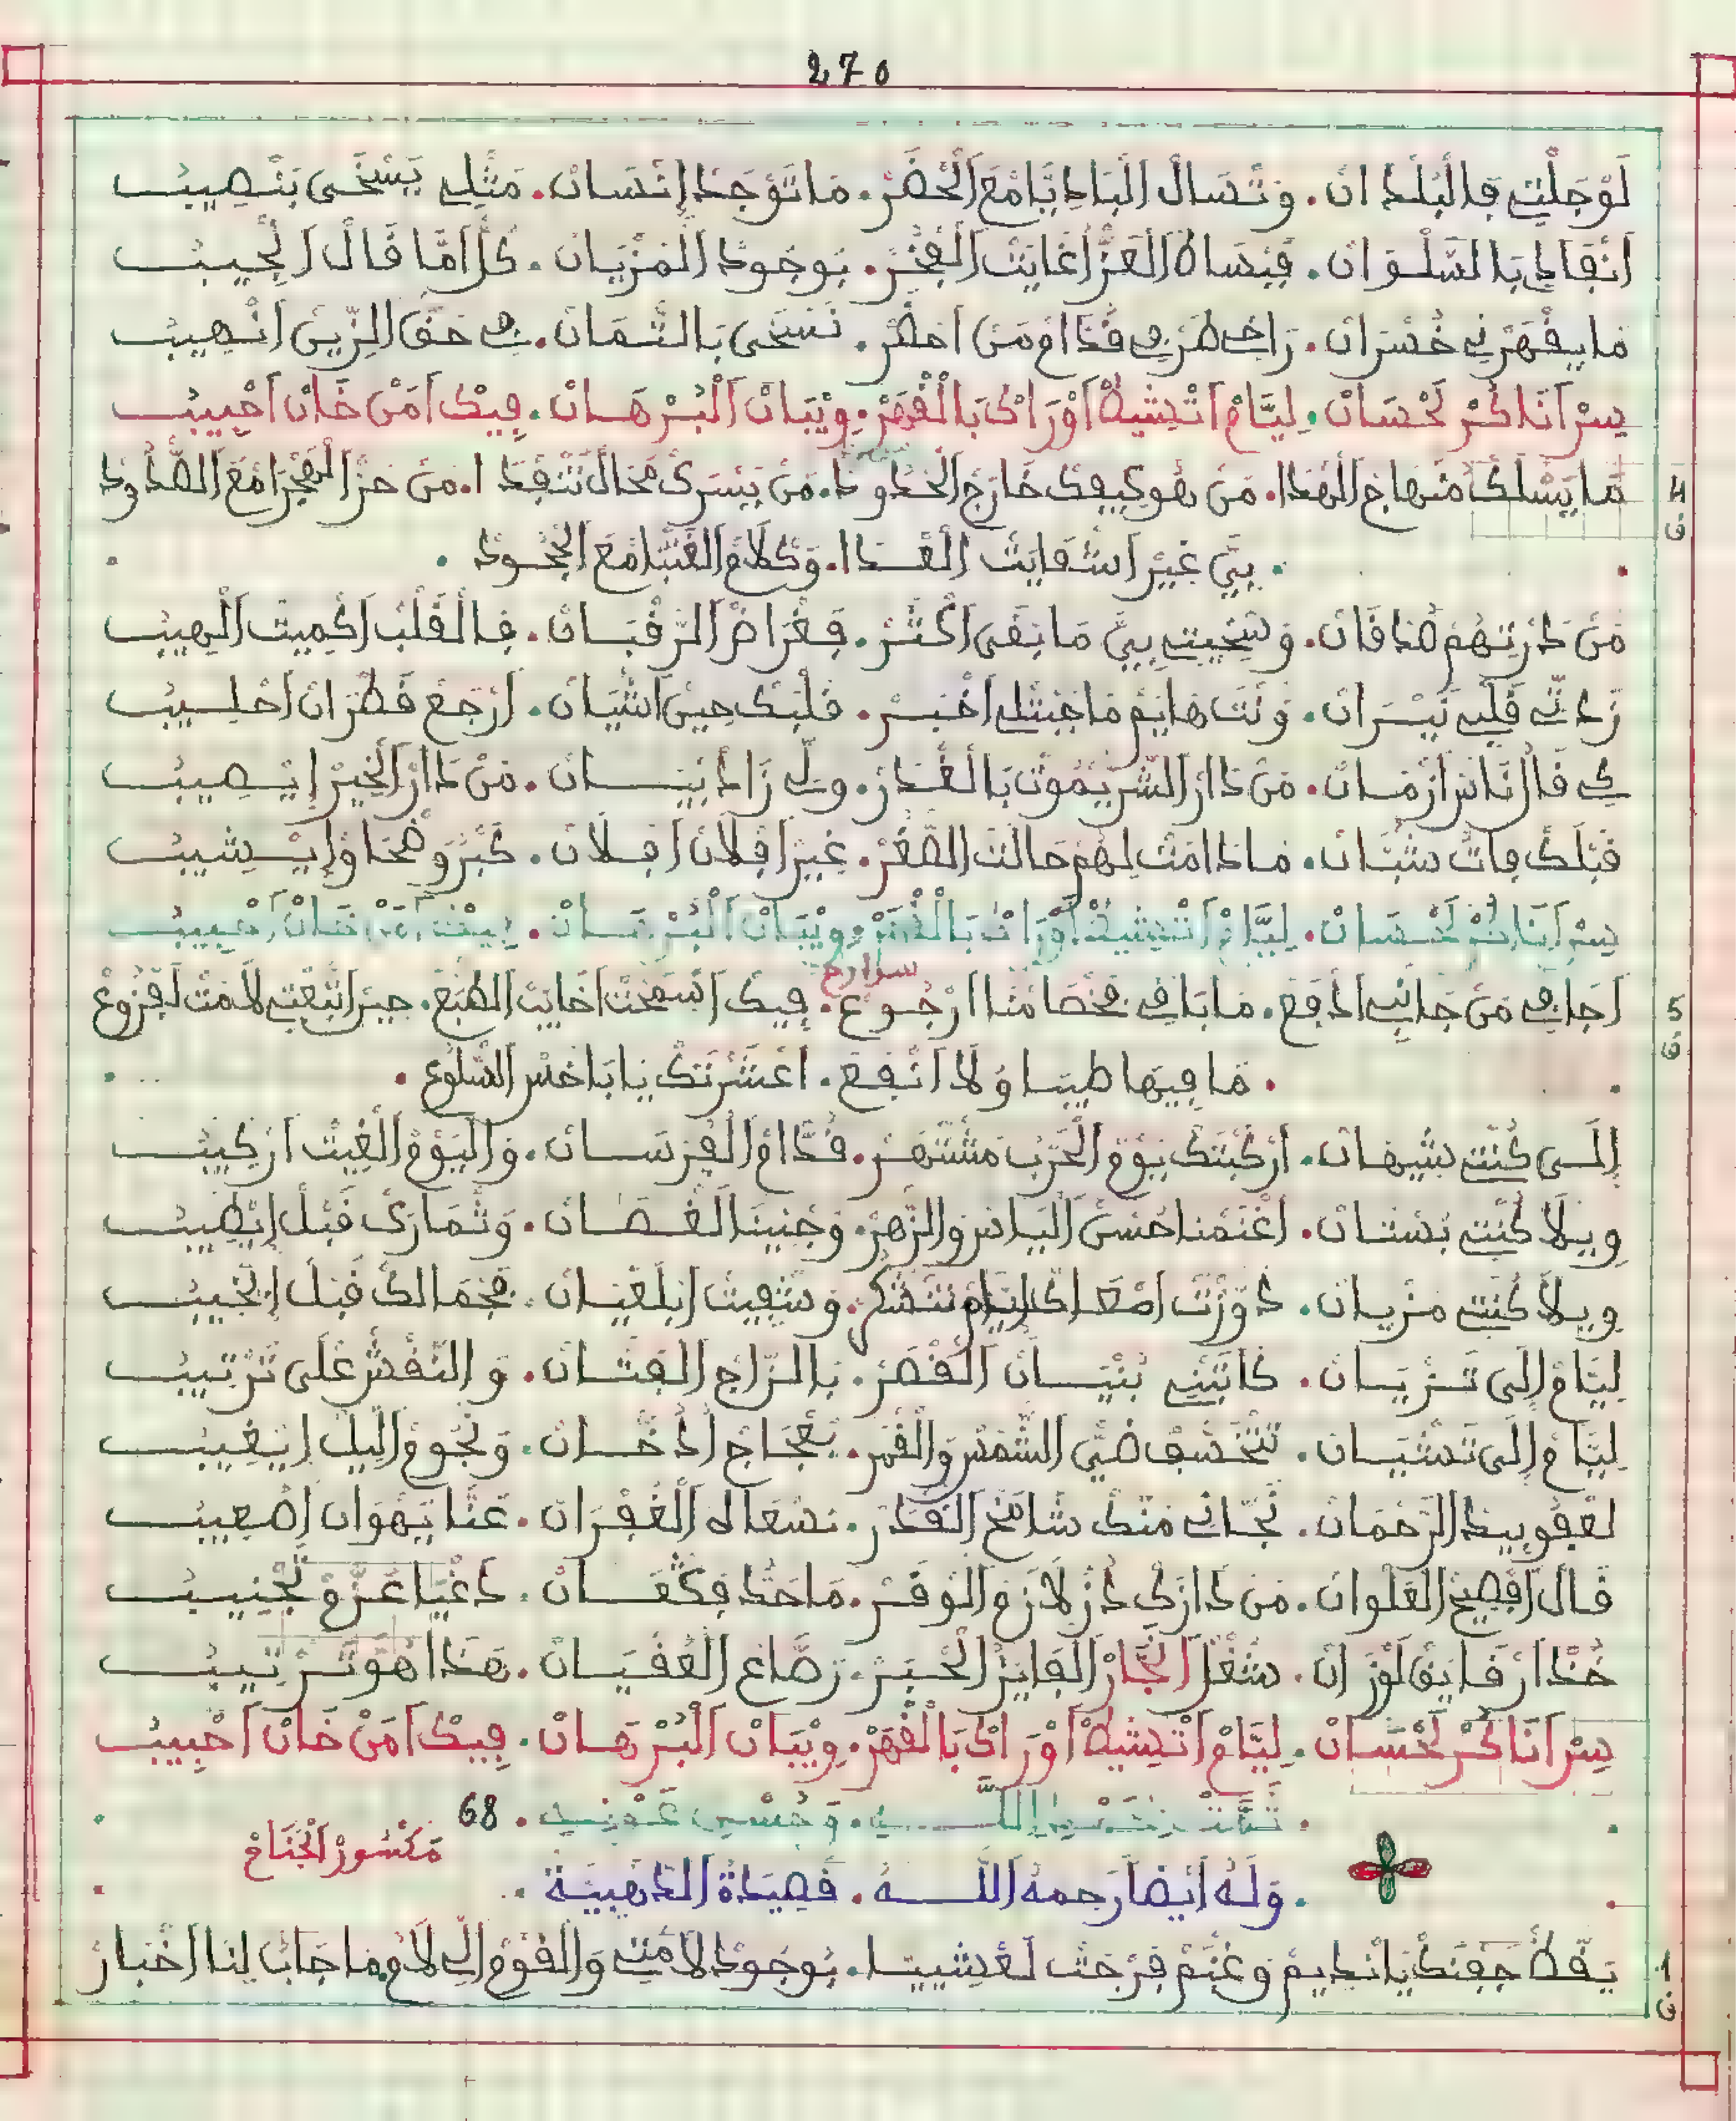 270
لَوْ جَلْتِ فَالْبُلْدَانْ. وَتْسَالْ الْبَادِيَّا مْعَ الْحْضَرْ. مَا تَوْجَدْ إِنْسَانْ. مَثْلِي يَسْخَى بَنْصِيبُ
اَنْفَادِي بَالسَّلْوَانْ. فِيسَاهْ الْعَزّْ اغَايَتْ الْفْخَرْ. بَوْجُودْ الْمَزْيَانْ. كُلّْ امَّا قَالْ الْجِيبُ
مَا يِقْهَرْنِي خُسْرَانْ. رَاحِي طَرْفِي قُدَّامْ مَنْ احْضَرْ. نَسْخَى بَالثْمَانْ. فِي حَقّْ الزِّينْ انْهِيبُ
سِرْ اَنَاكَرْ لَحْسَانْ. لِيَّامْ اَتْهِيشِيطْ اَوْرَاكْ بَالْقْهَرْ. وِيْبَانْ الْبُرْهَانْ. فِيكْ اَمَنْ خَانْ اَحْبِيبُ
4 ف
مَا يَسْلَكْ مَنْهَاجْ الْهْدَا. مَنْ هُو كِيفَكْ خَارَجْ الْحْدُودْ. مَنْ يَيْسَرَكْ مْحَالْ تَنْفْدَا. مَنْ حَرّْ الْهْجَرْ امْعَ الصّْدُودْ
. بِيَّ غِيرْ اشْفَايَتْ الْعْدَا. وَكْلَامْ الْعَيْبْ امْعَ الْجْحُودْ .
مَنْ دَرْتِهُمْ صُدْقَانْ. وَسْخِيتِ بِيَّ مَا بْقَى اكْثَرْ. فَغْرَاضْ الزَّقْبَانْ. فِالْقَلْبْ اكْمِيتْ الْهِيبُ
زَدْتِي قَلْبِي نِيرَانْ. وَنْتَ هَايَمْ مَا جَبْتْلِي اخْبَرْ. قَلْبَكْ حِينْ اشْيَانْ. اَرْجَعْ قَطْرَانْ احْلِيبُ
كِي قَالْ نَاسْ ازْمَانْ. مَنْ دَارْ الشَّرّْ يْمُوتْ بَالْغْدَرْ. وِلِّي زَادْ يْبَانْ. مَنْ دَارْ الْخِيرْ إِيصِيبُ
قَبْلَكْ فَاتْ شُبَّانْ. مَا دَامَتْ لِهُمْ حَالَتْ الصّْغَرْ. غِيرْ افْلَانْ افْلَانْ. كَبْرُو ضْحَاوْ إِيشِيبُ
سِرْ اَنَاكَرْ لَحْسَانْ. لِيَّامْ اَتْهِيشِيطْ اَوْرَاكْ بَالْقْهَرْ. وِيْبَانْ الْبُرْهَانْ. فِيكْ اَمَنْ خَانْ اَحْبِيبُ
سوارح
5 ف
اَجَافِي مَنْ جَانْبِي ادْفَعْ. مَا بَاقِي مْخَصَامْنَا ارْجُوعْ. فِيكْ اسْمَحْتْ اخَايَبْ الطّْبَعْ. حِيرْ اتْبَعْتِي لَامَتْ لَفْزُوعْ
. مَا فِيهَا طِيبَا وْلَا انْفَعْ. اعْشَرْتَكْ يَا بَاخَسْ السّْلُوعْ .
إِلَى كُنْتِ شِيهَانْ. ارْكَبْتَكْ يَوْمْ الْحَرْبْ مَشْتَهَرْ. قُدَّامْ الْفَرْسَانْ. وَالْيَوْمْ الْغِيتْ ارْكِيبُ
وِيلَا كُنْتِ بُسْتَانْ. اغْنَمْنَا حُسْنْ الْيَاسْ وَالزّْهَرْ. وَجْنِينَا الْغْصَانْ. وَثْمَارَكْ قْبَلْ إِيْطِيبُ
وِيلَا كُنْتِ مَزْيَانْ. دَوَّزْتْ امْعَاكْ لِيَّامْ نَتْشْكَرْ. وَشْفِيتْ ابْلَعْيَانْ. فَجْمَالَكْ قْبَلْ إِيْخِيبُ
لِيَّامْ إِلَى تَزْيَانْ. كَاتَبْنِي بُنْيَانْ الْقْصَرْ. بَالزَّاجْ الْفَتَّانْ. وَالنَّقْشْ عْلَى تَرْتِيبُ
لِيَّامْ إِلَى تَشْيَانْ. تَنْخْسَفْ ضَيّْ الشَّمْسْ وَالْقْمَرْ. بَعْجَاجْ الدُّخَّانْ. وَنْجُومْ اللِّيلْ إِيْغِيبُ
لَعْقُو بِيدْ الرَّحْمَانْ. نَجَّانِي مَنَّكْ شَامَخْ الْقْدَرْ. نَسْعَالُه الْغُفْرَانْ. عَنَّا يَهْوَانْ اصْعِيبُ
قَالْ افْصِيحْ الْعَلْوَانْ. مَنْ دَارَكْ دُرّْ لَازَمْ الْوْقَرْ. مَا حَدّْ فَكْنْعَانْ. دَغْيَا عَزَّمْ لَجْنِيبُ
خُدْ ارْقَايَقْ لَوْزَانْ. شُغْلْ النَّجَّارْ الْفَايَزْ الْحْبَرْ. رَصَّاعْ الْعُقْيَانْ. هَدَا هُوَ تَرْتِيبُ
سِرْ اَنَاكَرْ لَحْسَانْ. لِيَّامْ اَتْهِيشِيطْ اَوْرَاكْ بَالْقْهَرْ. وِيْبَانْ الْبُرْهَانْ. فِيكْ اَمَنْ خَانْ اَحْبِيبُ
. تَمَّتْ بِحَمْدِ اللَّـهِ. وَحُسْنِ عَوْنِهِ . 68
مَكْسُورْ الْجْنَاحْ
. وَلَهُ أَيْضاً رَحِمَهُ اَللَّـهُ . قَصِيدَةُ الذَّهَبِيَّة .
1 ف
يَقَّظْ جَفْنَكْ يَا نْدِيمْ وَغْنَمْ فَرْجَتْ لَعْشِيَّا. بُوجُودْ لَامْتِي وَالْقَوْمْ الِّي لَامْ مَا جَابْ لِنَا اخْبَارْ